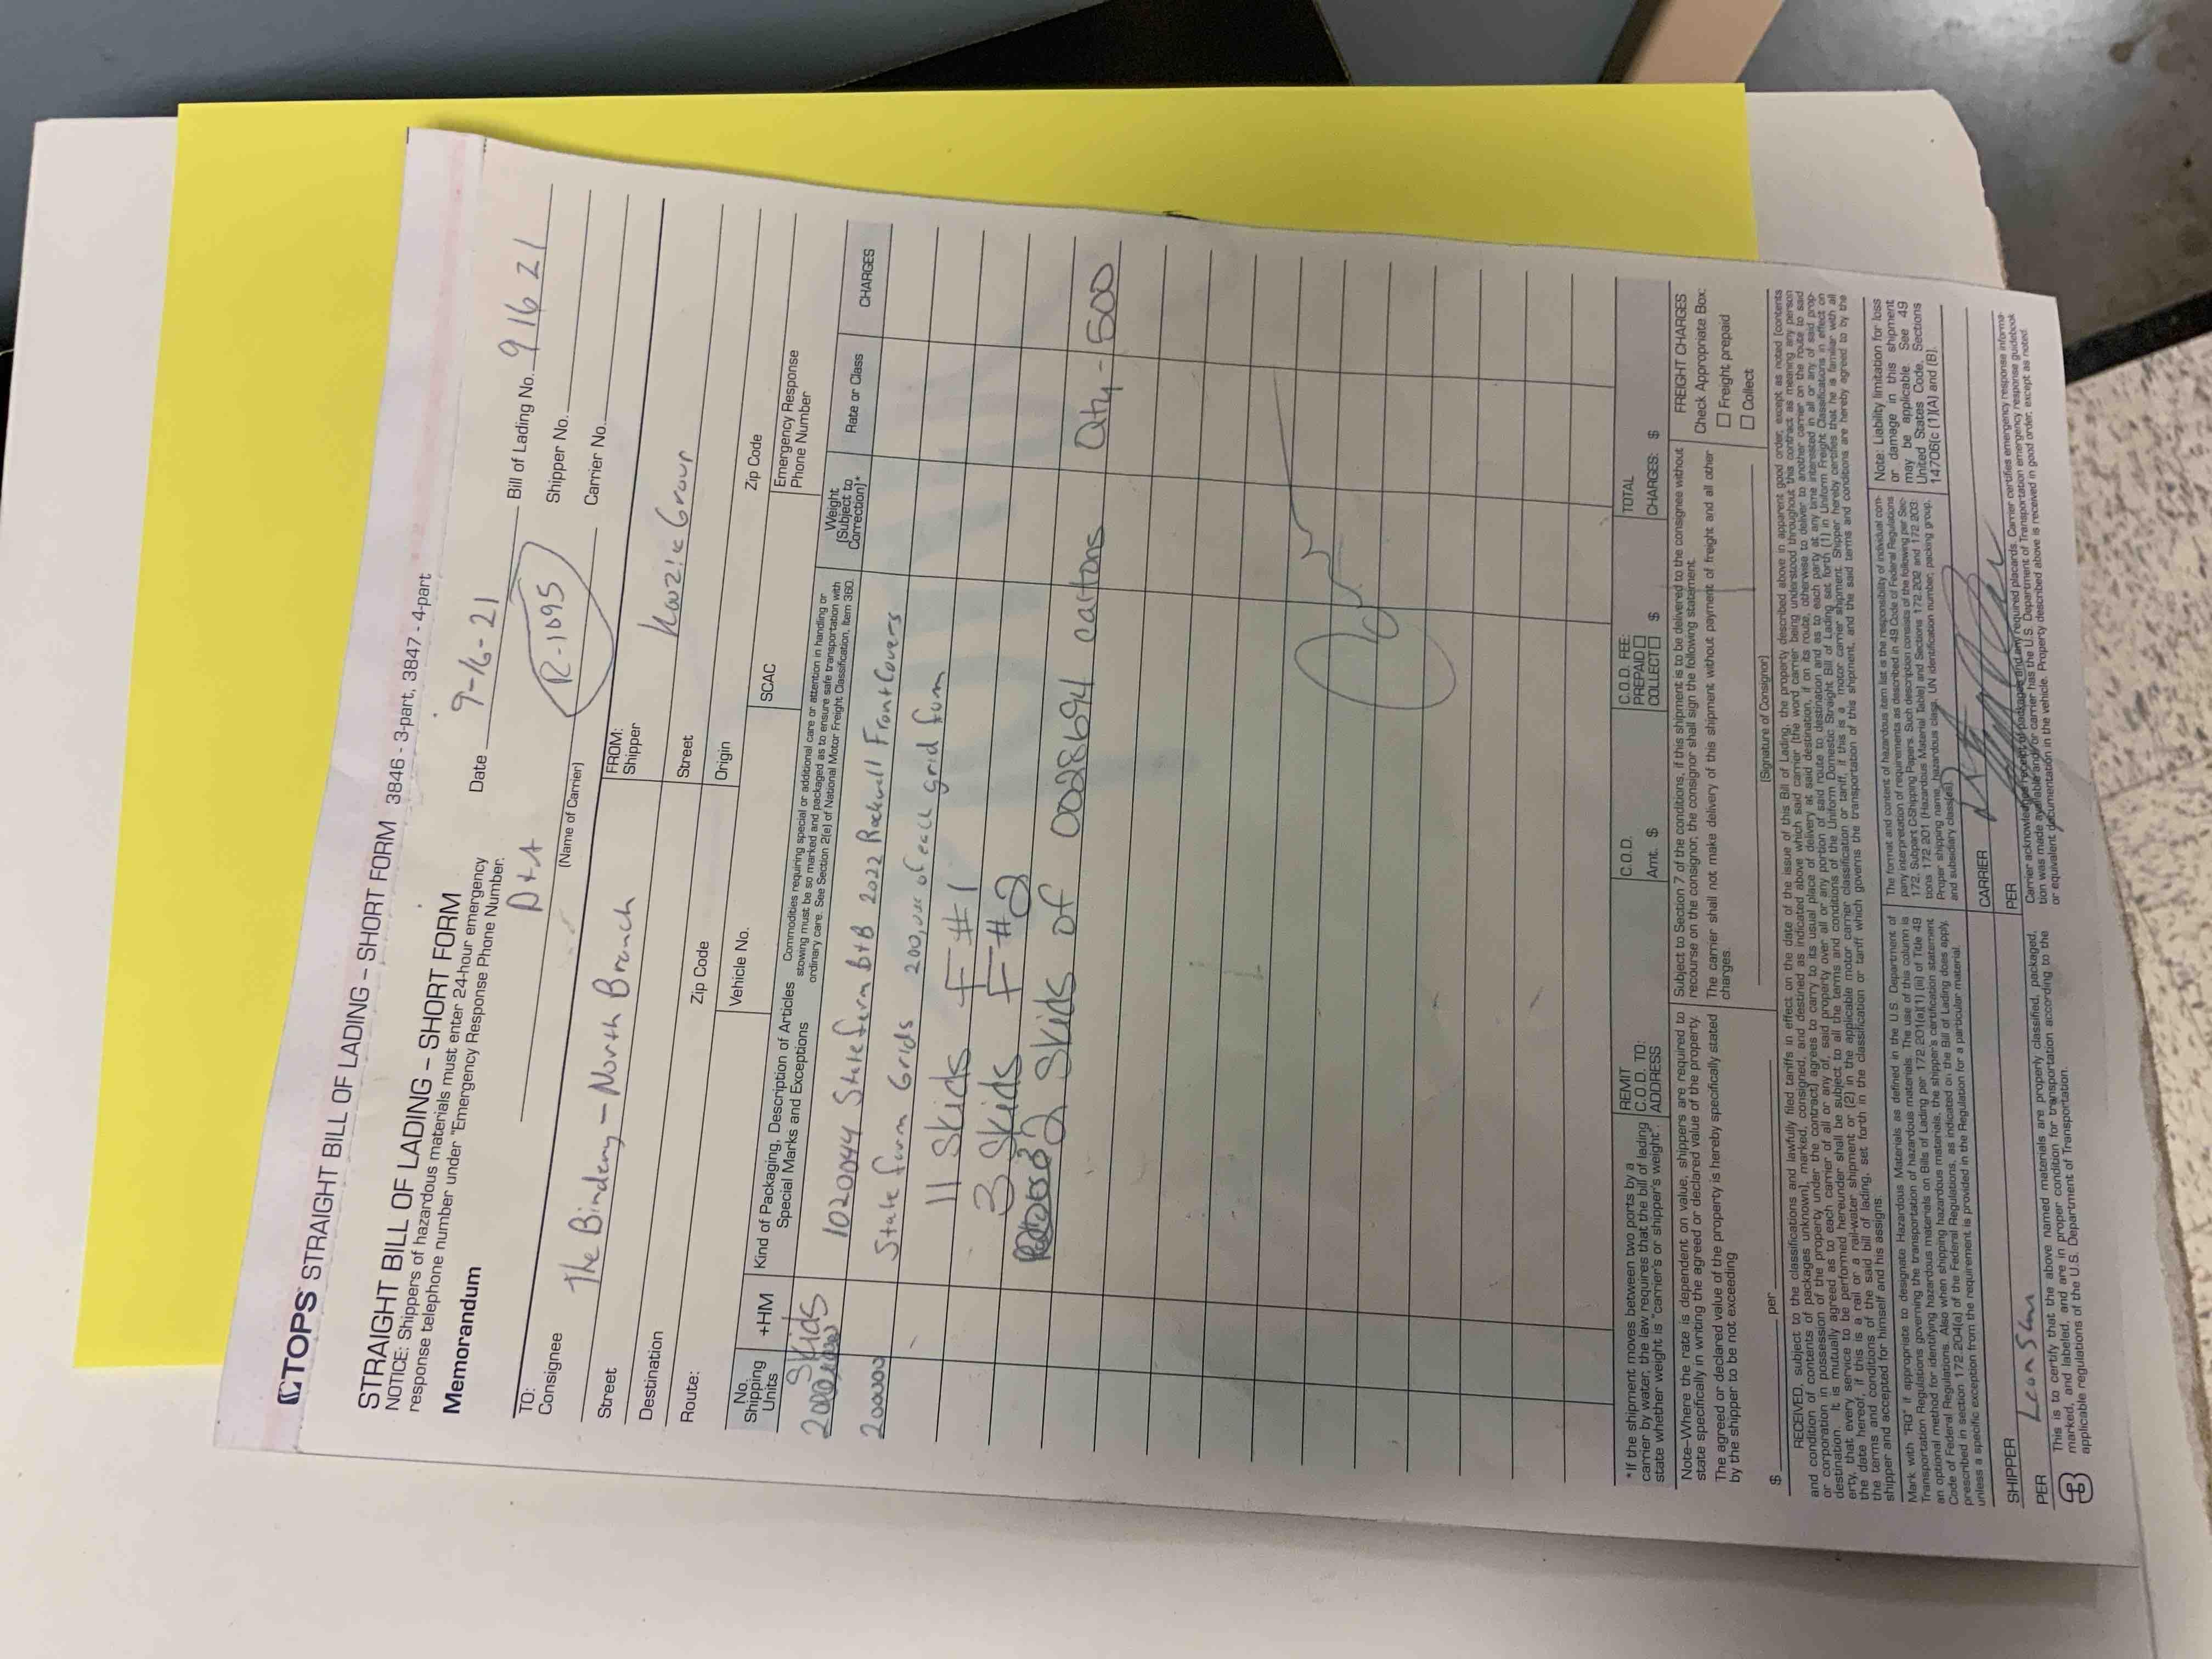 TOPS STRAIGHT BILL OF LADING – SHORT FORM 3846 - 3-part, 3847 - 4-part
STRAIGHT BILL OF LADING – SHORT FORM
NOTICE: Shippers of hazardous materials must enter 24-hour emergency
response telephone number under "Emergency Response Phone Number.
Memorandum
Date 9-16-21
Bill of Lading No. 9 16 21
D+A
R-1095
Shipper No.
(Name of Carrier)
Carrier No.
TO:
Consignee
The Bindery - North Branch
FROM:
Shipper
Street
Street
Destination
Zip Code
Origin
Zip Code
Route:
Vehicle No.
SCAC
Emergency Response
Phone Number
No.
Shipping
Units
+HM
Kind of Packaging, Description of Articles
Special Marks and Exceptions
Commodities requiring special or additional care or attention in handling or
stowing must be so marked and packaged as to ensure safe transportation with
ordinary care. See Section 2(e) of National Motor Freight Classification, Item 360.
Weight
(Subject to
Correction)*
Rate or Class
CHARGES
Skids
1020044 State farm B+B 2022 Rockwell Front Covers
200000 State farm Grids 200,000 of each grid form
11 Skids F#1
3 Skids F#2
2 Skids of 0028694 cartons Qty - 500
*If the shipment moves between two ports by a
carrier by water, the law requires that the bill of lading
state whether weight is "carrier's or shipper's weight".
REMIT
C.O.D. TO:
ADDRESS
C.O.D.
Amt. $
C.O.D. FEE:
PREPAID
COLLECT $
TOTAL
CHARGES: $
Note–Where the rate is dependent on value, shippers are required to
state specifically in writing the agreed or declared value of the property.
The agreed or declared value of the property is hereby specifically stated
by the shipper to be not exceeding
$ per
Subject to Section 7 of the conditions, if this shipment is to be delivered to the consignee without
recourse on the consignor, the consignor shall sign the following statement.
The carrier shall not make delivery of this shipment without payment of freight and all other
charges.
(Signature of Consignor)
FREIGHT CHARGES
Check Appropriate Box:
Freight prepaid
Collect
RECEIVED, subject to the classifications and lawfully filed tariffs in effect on the date of the issue of this Bill of Lading, the property described above in apparent good order, except as noted (contents
and condition of contents of packages unknown), marked, consigned, and destined as indicated above which said carrier (the word carrier being understood throughout this contract as meaning any person
or corporation in possession of the property under the contract) agrees to carry to its usual place of delivery at said destination, if on its route, otherwise to deliver to another carrier on the route to said
destination. It is mutually agreed as to each carrier of all or any of, said property over all or any portion of said route to destination and as to each party at any time interested in all or any of said prop-
erty, that every service to be performed hereunder shall be subject to all the terms and conditions of the Uniform Domestic Straight Bill of Lading set forth (1) in Uniform Freight Classifications in effect on
the date hereof, if this is a rail or a rail-water shipment or (2) in the applicable motor carrier classification or tariff, if this is a motor carrier shipment. Shipper hereby certifies that he is familiar with all
the terms and conditions of the said bill of lading, set forth in the classification or tariff which governs the transportation of this shipment, and the said terms and conditions are hereby agreed to by the
shipper and accepted for himself and his assigns.
Mark with "RQ" if appropriate to designate Hazardous Materials as defined in the U.S. Department of
Transportation Regulations governing the transportation of hazardous materials. The use of this column is
an optional method for identifying hazardous materials on Bills of Lading per 172.201(a)(1) (iii) of Title 49
Code of Federal Regulations. Also when shipping hazardous materials, the shipper's certification statement
prescribed in section 172.204(a) of the Federal Regulations, as indicated on the Bill of Lading does apply,
unless a specific exception from the requirement is provided in the Regulation for a particular material.
The format and content of hazardous item list is the responsibility of individual com-
pany interpretation of requirements as described in 49 Code of Federal Regulations
172, Subpart C-Shipping Papers. Such description consists of the following per Sec-
tions 172.201 (Hazardous Material Table) and Sections 172.202 and 172.203:
Proper shipping name, hazardous class, UN identification number, packing group,
and subsidiary class(es)
Note: Liability limitation for loss
or damage in this shipment
may be applicable. See 49
United States Code, Sections
14706(c)(1)(A) and (B).
SHIPPER
CARRIER
PER
PER
This is to certify that the above named materials are properly classified, packaged,
marked, and labelled, and are in proper condition for transportation according to the
applicable regulations of the U.S. Department of Transportation.
Carrier acknowledges receipt of packages and any required placards. Carrier certifies emergency response informa-
tion was made available and/or carrier has the U.S. Department of Transportation emergency response guidebook
or equivalent documentation in the vehicle. Property described above is received in good order, except as noted.